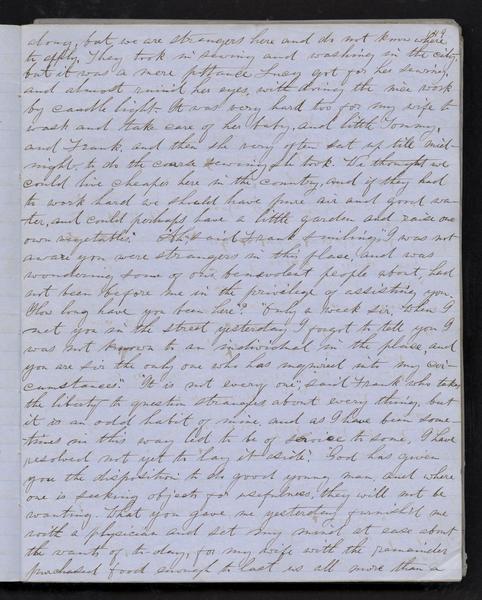 along, but we are strangers here and do not know where
to apply. They took in sewing and washing in the city,
but it was a mere pittance Lucy got for her sewing,
and almost ruin'd her eyes, with doing the nice work
by candle light. It was very hard too for my wife to
wash and take care of her baby, and little Tommy,
and Frank, and then she very often sat up till mid-
night, to do the coarse sewing she took. We thought we
could live cheaper here in the country, and if they had
to work hard we should have pure air and good wa-
ter, and could perhaps have a little garden and raise our
own vegetables." "Ah," said Frank smiling, "I was not
aware you were strangers in this place, and was
wondering some of our benevolent people about, had
not been before me in the privilege of assisting you.
How long have you been here?" "Only a week sir, when I
met you in the street yesterday I forgot to tell you I
was not known to an individual in the place, and
you are sir the only one who has inquired into my cir-
cumstances". "It is not every one", said Frank "who takes
the liberty to question strangers about every thing, but
it is an odd habit of mine, and as I have been some-
times in this way led to be of service to some, I have
resolved not yet to lay it aside." "God has given
you the disposition to do good young man, and where
one is seeking objects for usefulness, they will not be
wanting. What you gave me yesterday, furnish'd me
with a physician and set my mind at ease about
the wants of to day, for my wife with the remainder
purchased food enough to last us all more than a